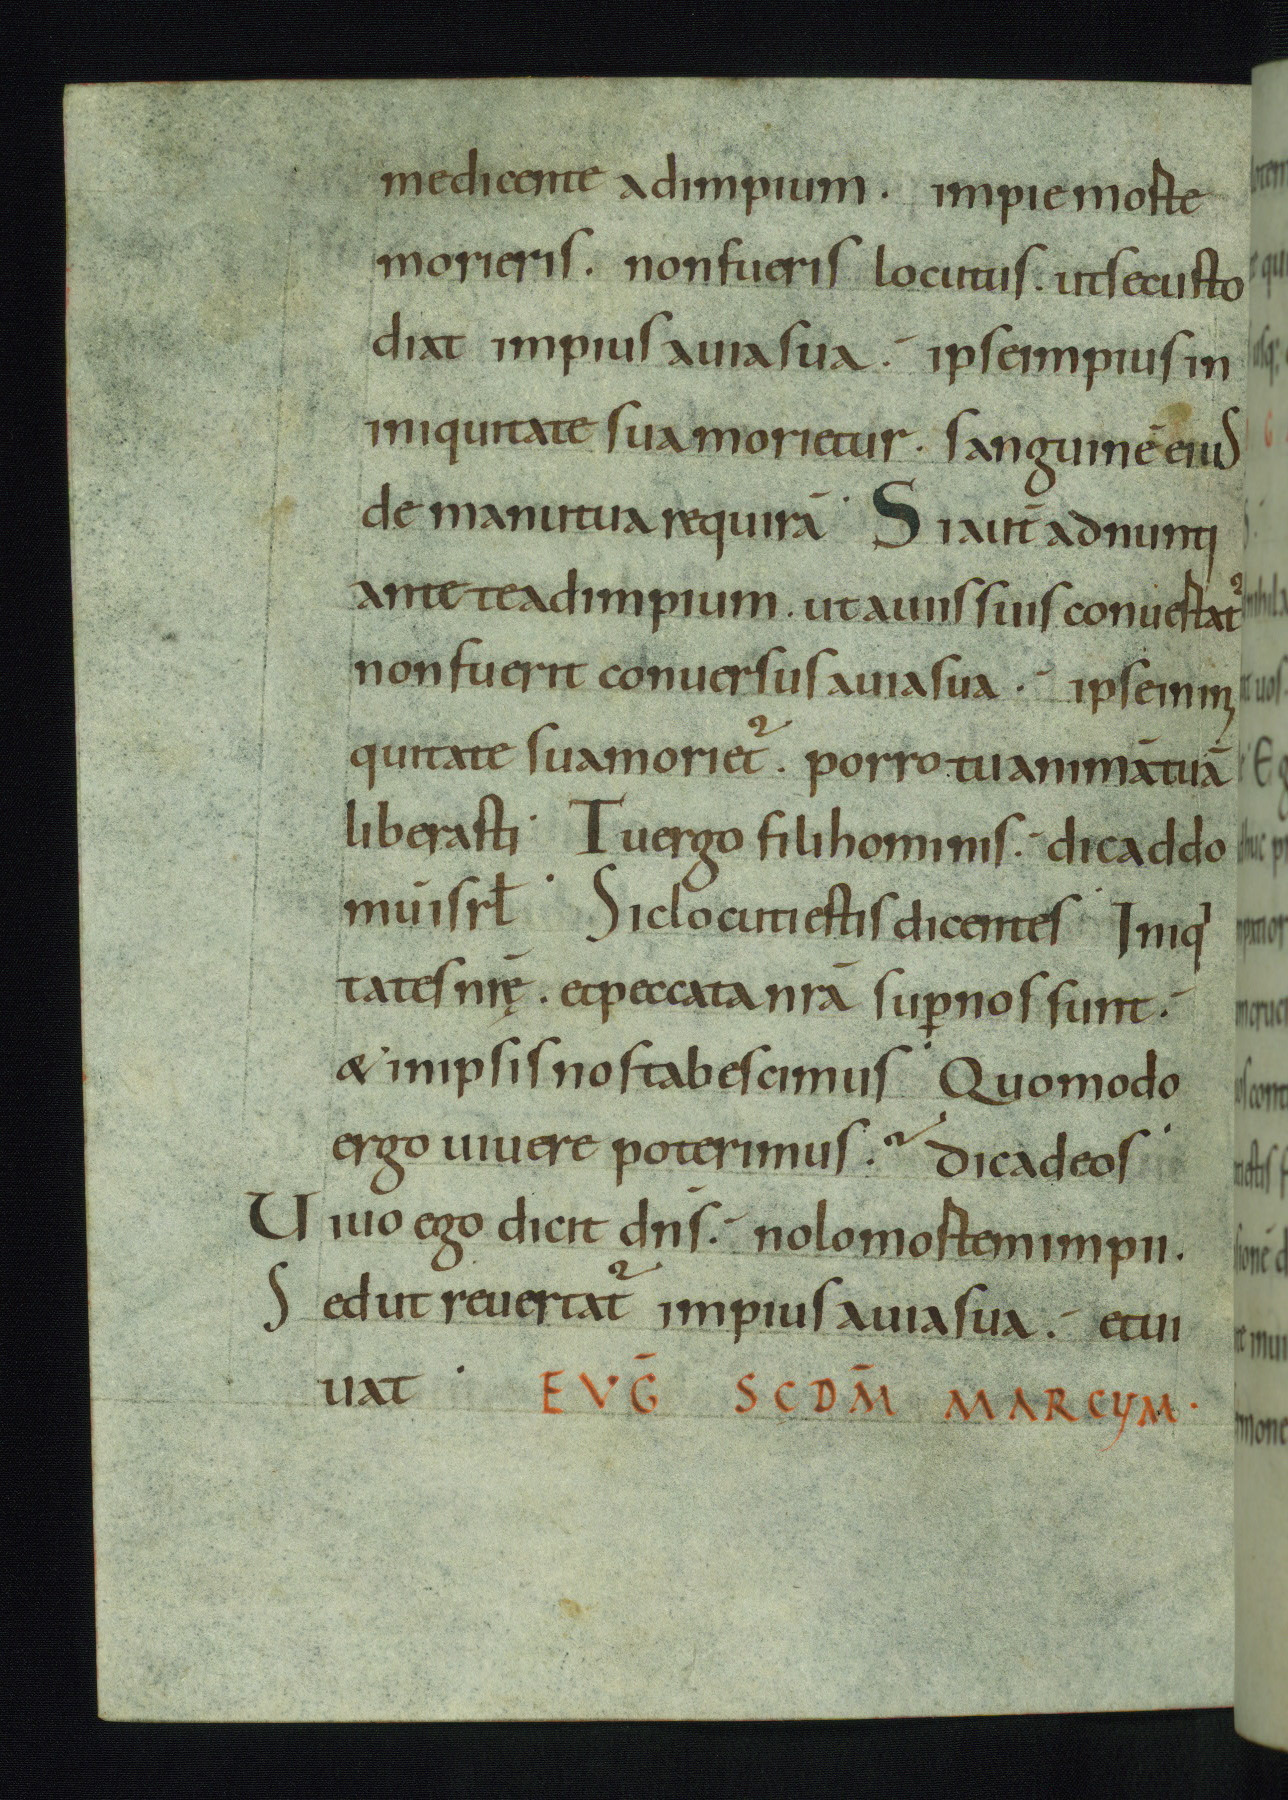 me dicente ad impium. impie morte
morieris. non fueris locutus. ut se custo
diat impius a uia sua. ipse impius in
iniquitate sua morietur. sanguinē eius
de manu tua requirā. Si aut̄ adnunti
ante te ad impium. ut a uiis suis conuertat᷑
non fuerit conuersus a uia sua. ipse in ini
quitate sua moriet᷑. porro tu animā tuā
liberasti. Tu ergo fili hominis. dic ad do
mū isrł. Sic locuti estis dicentes Iniqͥ
tates nr̄ę. et peccata nrā sup̱ nos sunt.
& in ipsis nos tabescimus. Quomodo
ergo uiuere poterimus? dic ad eos.
Uiuo ego dicit dn̄s. nolo mortem impii.
Sed ut reuertat᷑ impius a uia sua. et ui
uat. EVḠ SCDM̄ MARCUM.